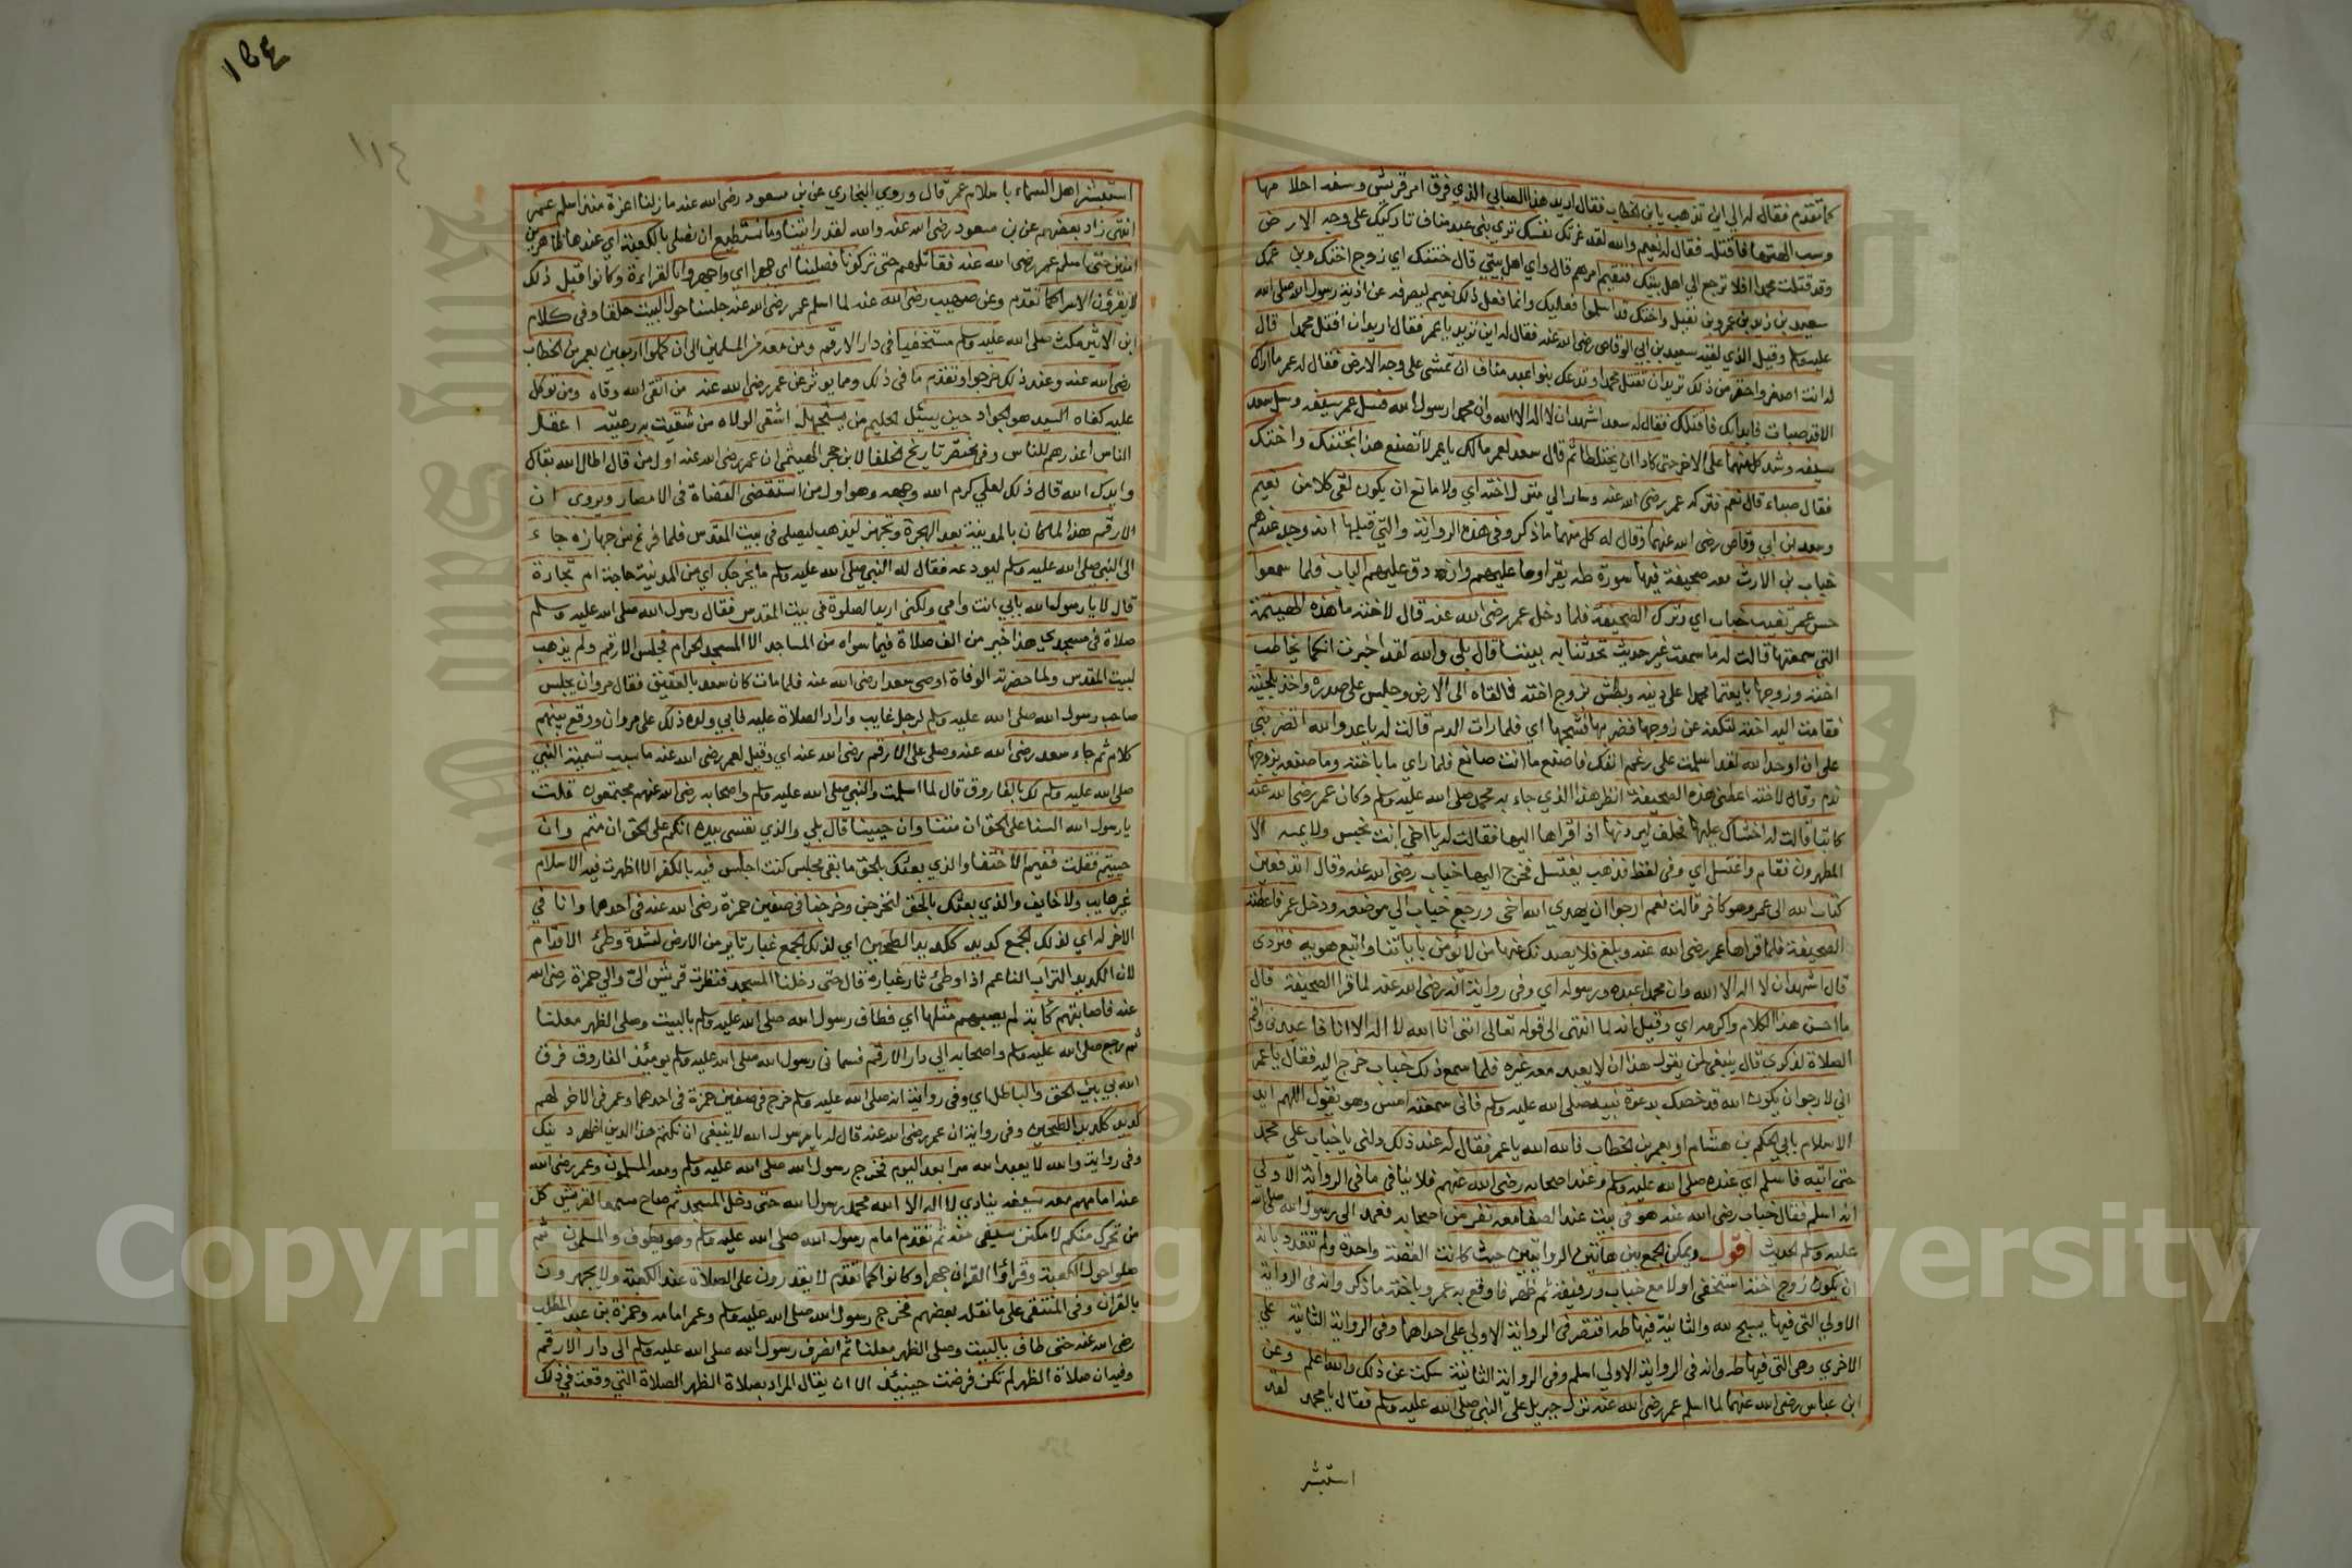 كما تقدم فقال له الى اين تذهب يا ابن الخطاب فقال اريد هذا الصابي الذي فرق امر قريش وسفه احلامها
وسب الهتها فاقتله فقال له نعيم والله لقد غرتك نفسك ترى بني عبد مناف تاركيك على وجه الارض
وقد قتلت محمدا افلا ترجع الى اهل بيتك فتقيم امرهم قال واي اهل بيتي قال ختنك اي زوج اختك وابن عمك
سعيد بن زيد بن عمرو بن نفيل واختك قد اسلما فعليك وانما فعل ذلك نعيم ليصرفه عن اذية رسول الله صلى الله
عليه وسلم وقيل الذي لقيه سعد بن ابي الوقاص رضى الله عنه فقال له اين تريد يا عمر فقال اريد ان اقتل محمدا قال
له انت اصغر واحقر من ذلك تريد ان تقتل محمدا وتدعك بنوا عبد مناف ان تمشى على وجه الارض فقال له عمر ما اراك
الا قد صبات فابدا بك فاقتلك فقال له سعد اشهد ان لا اله الا الله وان محمدا رسول الله فسل عمر سيفه وسل سعد
سيفه وشد كل منهما على الاخر حتى كادا ان يختلطا ثم قال سعد لعمر مالك يا عمر لا تصنع هذا بختنك واختك
فقال صباء قال نعم فتركه عمر رضى الله عنه وسار الى منزل اخته اي ولا مانع ان يكون لقى كلا من نعيم
وسعد بن ابي وقاص رضى الله عنهما وقال له كل منهما ما ذكر وفي هذه الرواية والتي قبلها انه وجد عندهم
خباب بن الارت معه صحيفة فيها سورة طه يقراوها عليهم وانه دق عليهم الباب فلما سمعوا
حس عمر تغيب خباب اي وترك الصحيفة فلما دخل عمر رضى الله عنه قال لاخته ما هذه الهينمة
التي سمعتها قالت له ما سمعت غير حديث تحدثنا به بيننا قال بلى والله لقد اخبرت انكما يخاطب
اخته وزوجها بايعتما محمدا على دينه وبطش بزوج اخته فالقاه الى الارض وجلس على صدره واخذ بلحيته
فقامت اليه اخته لتكفه عن زوجها فضربها فشجها اي فلما رات الدم قالت له يا عدو الله اتضربني
على ان اوحد الله لقد اسلمت على رغم انفك فاصنع ما انت صانع فلما راي ما باخته وما صنعه بزوجها
ندم وقال لاخته اعطني هذه الصحيفة انظر هذا الذي جاء به محمد صلى الله عليه وسلم وكان عمر رضى الله عنه
كاتبا قالت له اخشاك عليها فحلف ليردنها اذا قراها اليها فقالت له يا اخي انت نجس ولا يمسه الا
المطهرون فقام واغتسل اي وفي لفظ فذهب يغتسل فخرج اليها خباب رضى الله عنه وقال اتدفعين
كتاب الله الى عمر وهو كافر قالت نعم ارجوا ان يهدي الله اخي ورجع خباب الى موضعه ودخل عمر فاعطته
الصحيفة فلما قراها عمر رضى الله عنه وبلغ فلا يصدنك عنها من لا يؤمن بها واتبع هويه فتردى
قال اشهد ان لا اله الا الله وان محمدا عبده ورسوله اي وفي رواية انه رضى الله عنه لما قرا الصحيفة قال
ما احسن هذا الكلام واكرمه اي وقيل انه لما انتهى الى قوله تعالى انني انا الله لا اله الا انا فاعبدني واقم
الصلاة لذكري قال ينبغي لمن يقول هذا ان لا يعبد معه غيره فلما سمع ذلك خباب خرج اليه فقال يا عمر
اني لارجو ان يكون الله قد خصك بدعوة نبيه صلى الله عليه وسلم فاني سمعته امس وهو يقول اللهم ايد
الاسلام بابي الحكم بن هشام او بعمر بن الخطاب فالله الله يا عمر فقال له عند ذلك دلني يا خباب علي محمد
حتى اتيه فاسلم اي عنده صلى الله عليه وسلم وعند اصحابه رضى الله عنهم فلا ينافي ما في الرواية الاولي
انه اسلم فقال خباب رضى الله عنه هو في بيت عند الصفا معه نفر من اصحابه فعمد الى رسول الله صلى الله
عليه وسلم الحديث اقول ويمكن الجمع بين هاتين الروايتين حيث كانت القصة واحدة ولم تتعدد بانه
ان يكون زوج اخته استخفى اولا مع خباب ورفيقه ثم ظهر فاوقع به عمر وباخته ما ذكر وانه في الرواية
الاولي التي فيها يسبح لله والثانية فيها طه اقتصر في الرواية الاولي على احداهما وفي الرواية الثانية علي
الاخري وهي التي فيها طه وانه في الرواية الاولي اسلم وفي الرواية الثانية سكت عن ذلك والله اعلم وعن
ابن عباس رضى الله عنهما لما اسلم عمر رضى الله عنه نزل جبريل على النبي صلى الله عليه وسلم فقال يا محمد لقد
استبشر
١٥٤
١١٤
استبشر اهل السماء باسلام عمر قال وروي البخاري عن بن مسعود رضى الله عنه ما زلنا اعزة منذ اسلم عمر
انتهى زاد بعضهم عن بن مسعود رضى الله عنه والله لقد رايتنا وما نستطيع ان نصلى بالكعبة اي عندها ظاهرين
امنين حتى اسلم عمر رضى الله عنه فقاتلهم حتى تركونا فصلينا اي جهرا اي واجهروا بالقراءة وكانوا قبل ذلك
لا يقرؤن الا سرا كما تقدم وعن صهيب رضى الله عنه لما اسلم عمر رضى الله عنه جلسنا حول البيت حلقا وفي كلام
ابن الاثير مكث صلى الله عليه وسلم مستخفيا في دار الارقم ومن معه من المسلمين الى ان كملوا اربعين بعمر بن الخطاب
رضى الله عنه وعند ذلك خرجوا وتقدم ما في ذلك ومما يوثر عن عمر رضى الله عنه من اتقى الله وقاه ومن توكل
عليه كفاه السيد هو الجواد حين يسئل الحليم من يستجهل اشقى الولاه من شقيت به رعيته اعقل
الناس اعذرهم للناس وفي مختصر تاريخ الخلفا لابن حجر الهيثمي ان عمر رضى الله عنه اول من قال اطال الله بقاك
وايدك الله قال ذلك لعلي كرم الله وجهه وهو اول من استقضى القضاة في الامصار ويروى ان
الارقم هذا لما كان بالمدينة بعد الهجرة وتجهز ليذهب ليصلى في بيت المقدس فلما فرغ من جهازه جاء
الى النبي صلى الله عليه وسلم ليودعه فقال له النبي صلى الله عليه وسلم ما يخرجك اي من المدينة حاجة ام تجارة
قال لا يا رسول الله بابي انت وامي ولكني اريد الصلوة في بيت المقدس فقال رسول الله صلى الله عليه وسلم
صلاة في مسجدي هذا خير من الف صلاة فيما سواه من المساجد الا المسجد الحرام فجلس الارقم ولم يذهب
لبيت المقدس ولما حضرته الوفاة اوصى سعدا رضى الله عنه فلما مات كان سعد بالعقيق فقال مروان يجلس
صاحب رسول الله صلى الله عليه وسلم لرجل غايب واراد الصلاة عليه فابي ولده ذلك على مروان ووقع بينهم
كلام ثم جاء سعد رضى الله عنه وصلى على الارقم رضى الله عنه اي وقيل لعمر رضى الله عنه ما سبب تسمية النبي
صلى الله عليه وسلم لك بالفاروق قال لما اسلمت والنبي صلى الله عليه وسلم واصحابه رضى الله عنهم مجتمعون قلت
يا رسول الله السنا على الحق ان متنا وان حيينا قال بلى والذي نفسى بيده انكم على الحق ان متم وان
حييتم فقلت ففيم الاختفا والذي بعثك بالحق ما بقى مجلس كنت اجلس فيه بالكفر الا اظهرت فيه الاسلام
غير هايب ولا خايف والذي بعثك بالحق لنخرجن وخرجنا في صفين حمزة رضى الله عنه في احدهما وانا في
الاخر له اي لذلك الجمع كديد ككديد الطحين اي لذلك الجمع غبار ثاير من الارض لشدة وطئ الاقدام
لان الكديد التراب الناعم اذا وطئ ثار غباره قال حتى دخلنا المسجد فنظرت قريش الي والي حمزة رضى الله
عنه فاصابتهم كآبة لم يصبهم مثلها اي فطاف رسول الله صلى الله عليه وسلم بالبيت وصلى الظهر معلنا
ثم رجع صلى الله عليه وسلم واصحابه الى دار الارقم فسماني رسول الله صلى الله عليه وسلم يومئذ الفاروق فرق
الله بي بين الحق والباطل اي وفي رواية انه صلى الله عليه وسلم خرج في صفين حمزة في احدهما وعمر في الاخر لهم
كديد ككديد الطحين وفي رواية ان عمر رضى الله عنه قال له يا رسول الله لا ينبغي ان تكتم هذا الدين اظهر دينك
وفي رواية والله لا يعبد الله سرا بعد اليوم فخرج رسول الله صلى الله عليه وسلم ومعه المسلمون وعمر رضى الله
عنه امامهم معه سيفه ينادي لا اله الا الله محمد رسول الله حتى دخل المسجد ثم صاح مسمعا لقريش كل
من تحرك منكم لامكنن سيفى منه ثم تقدم امام رسول الله صلى الله عليه وسلم وهو يطوف والمسلمون ثم
صلوا حول الكعبة وقراؤا القران جهرا وكانوا كما تقدم لا يقدرون على الصلاة عند الكعبة ولا يجهرون
بالقران وفي المنتقى على ما نقله بعضهم فخرج رسول الله صلى الله عليه وسلم وعمر امامه وحمزة بن عبد المطلب
رضى الله عنه حتى طاف بالبيت وصلى الظهر معلنا ثم انصرف رسول الله صلى الله عليه وسلم الى دار الارقم
وفيه ان صلاة الظهر لم تكن فرضت حينيئذ الا ان يقال المراد بصلاة الظهر الصلاة التي وقعت في ذلك